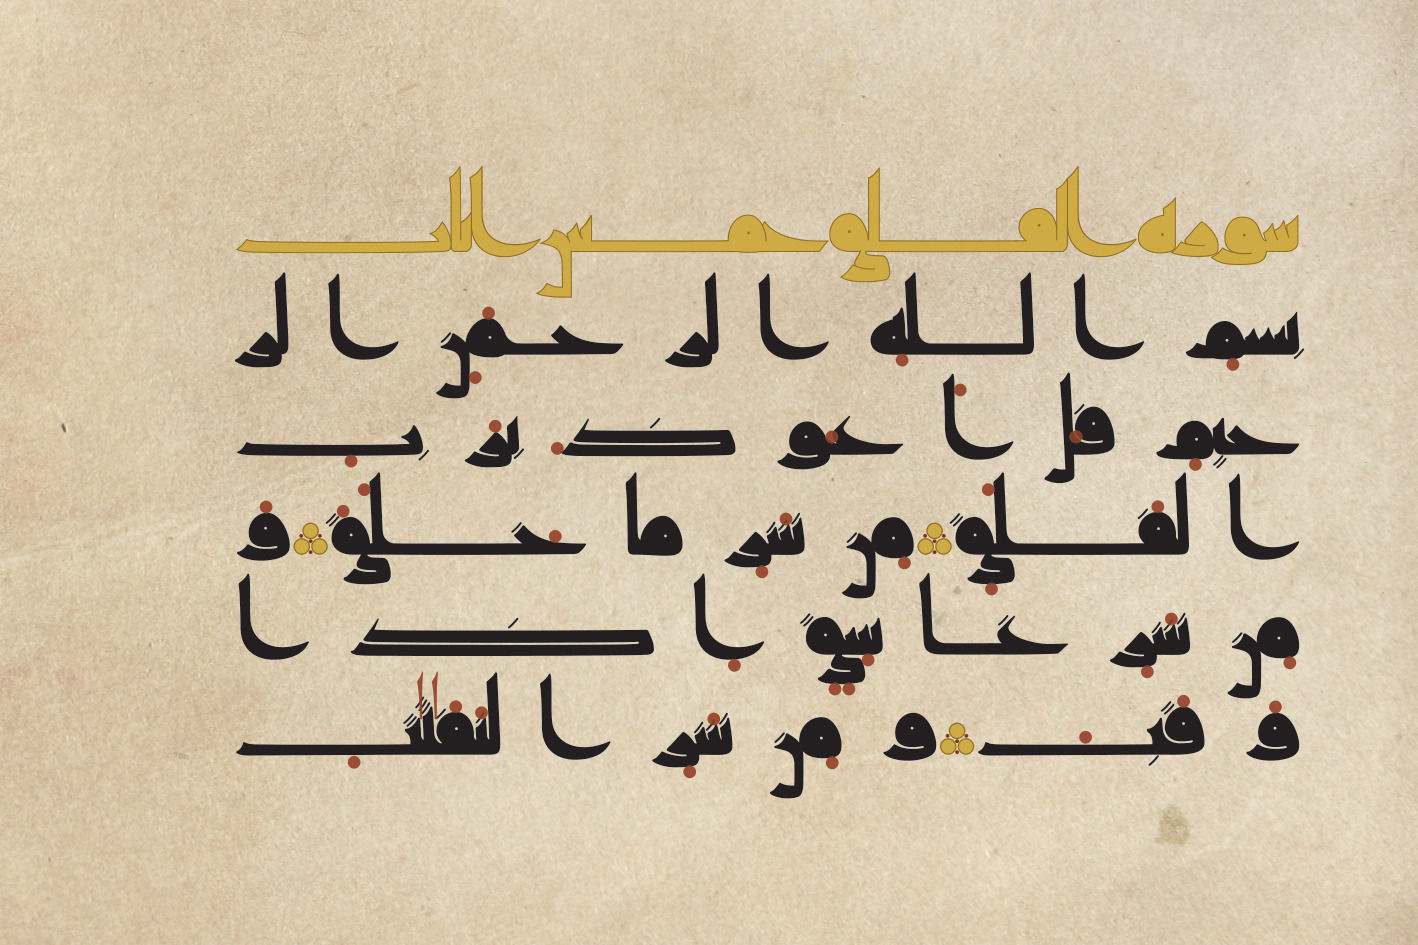 سورة الفلق خمس ايت
بسم الله الرحمن الر
حيم قل اعوذ برب
الفلق من شر ما خلق و
من شر غاسق اذا
وقب و من شر النفثت